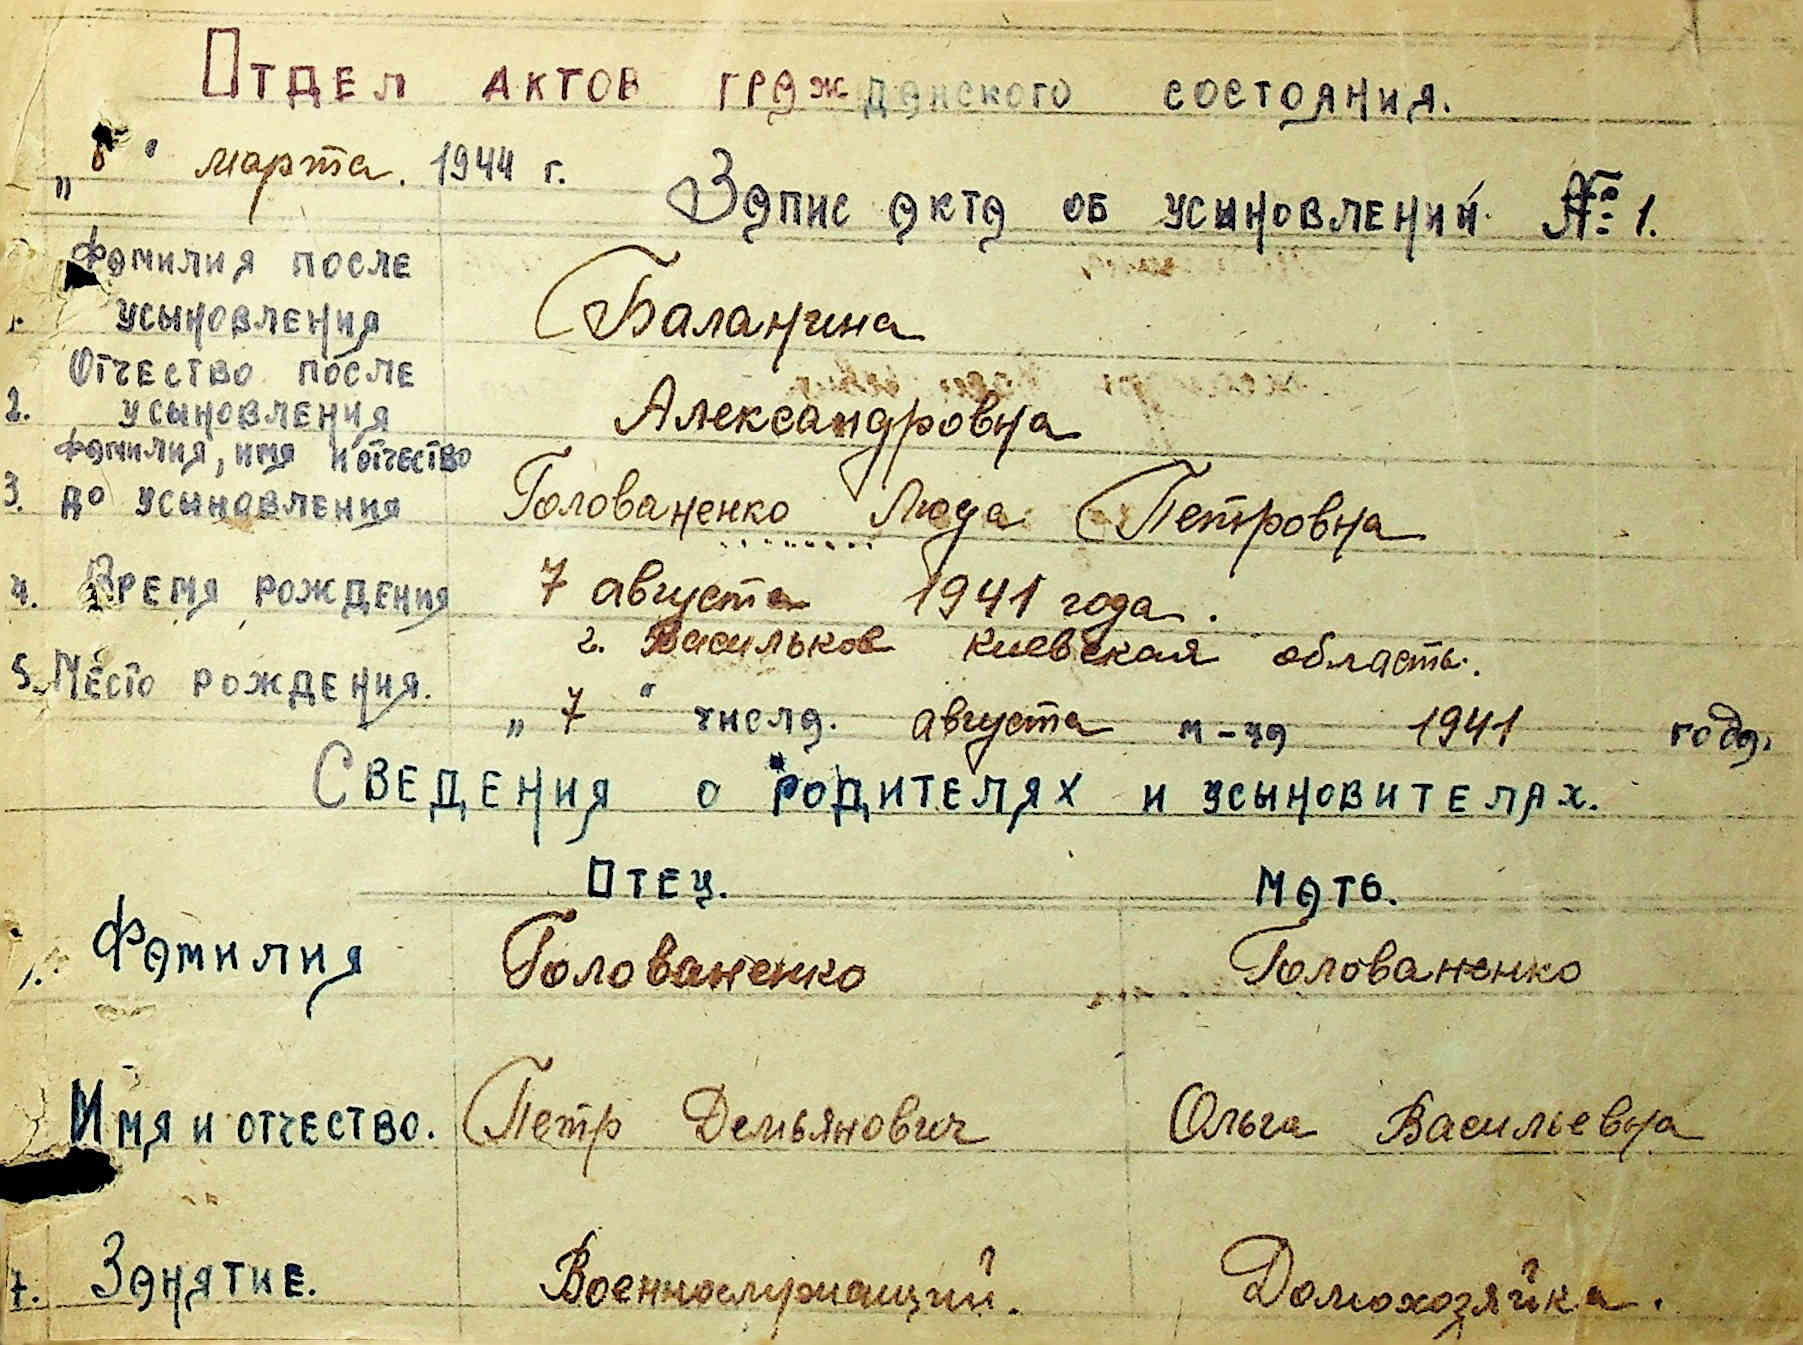 Отдел актов гражданского состояния.
„8“ марта. 1944 г.
Запис акта об усыновлений № 1.
Фамилия после
1. усыновления Баланина
Отчество после
2. усыновления Александровна
Фамилия, имя и отчество
3. до усыновления Голованенко Люда Петровна
4. Время рождения 7 августа 1941 года.
г. Васильков киевская область.
5. Место рождения.
„7“ числа. августа м-ца 1941 года.
Сведения о родителях и усыновителах.
Отец. Мать.
1. Фамилия Голованенко Голованенко
Имя и отчество. Петр Демьянович Ольга Васильевна
7. Занятие. Военнослужащий. Домохозяйка.